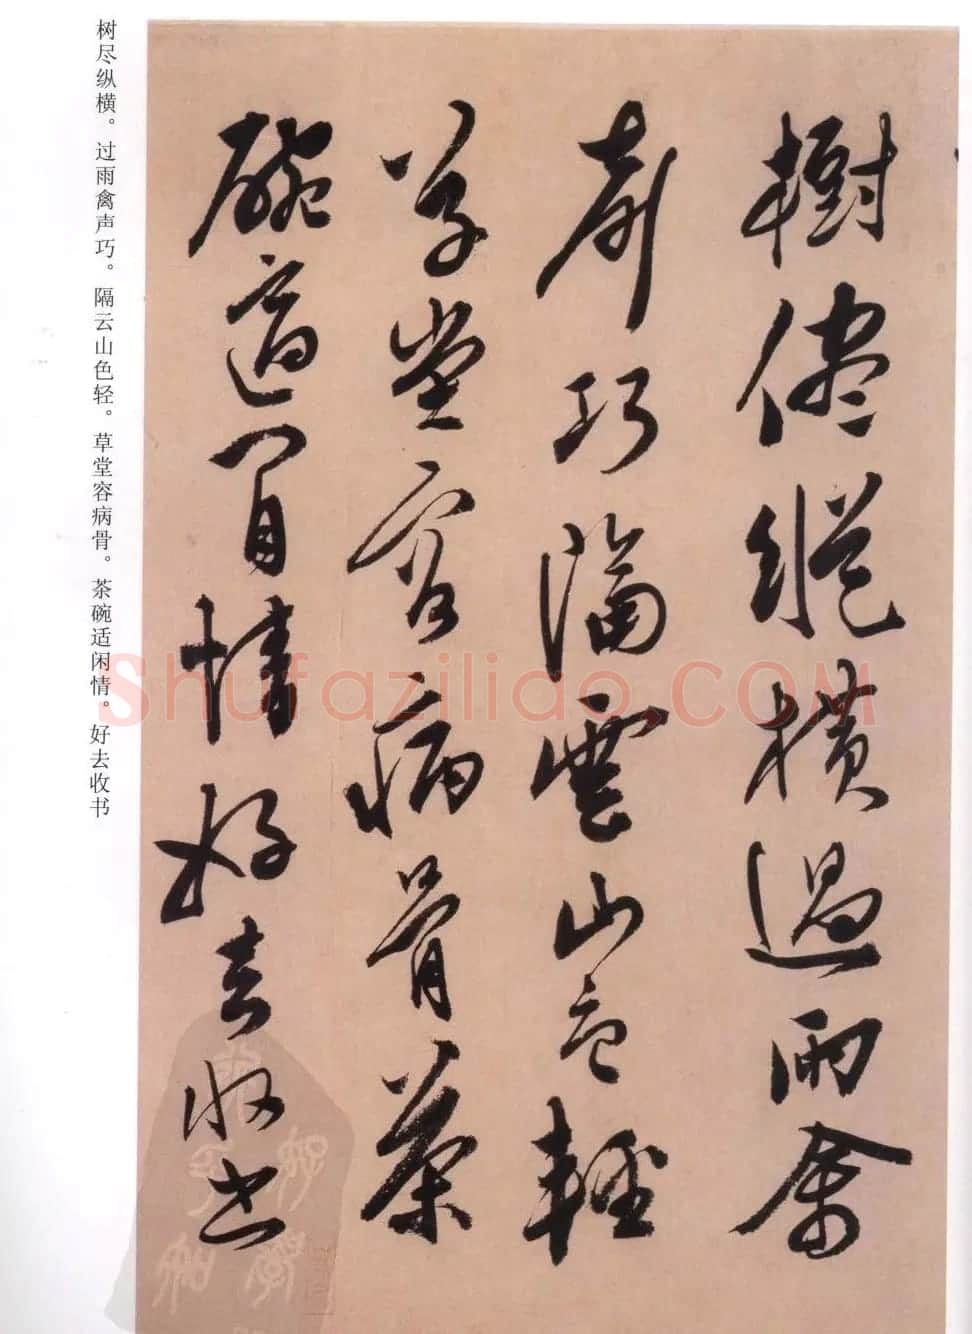 樹儘縱橫過雨禽
声巧隔雲山色輕
草堂容病骨茶
碗適閒情好去收书
树尽纵横。过雨禽声巧。隔云山色轻。草堂容病骨。茶碗适闲情。好去收书
Shufazilido.COM